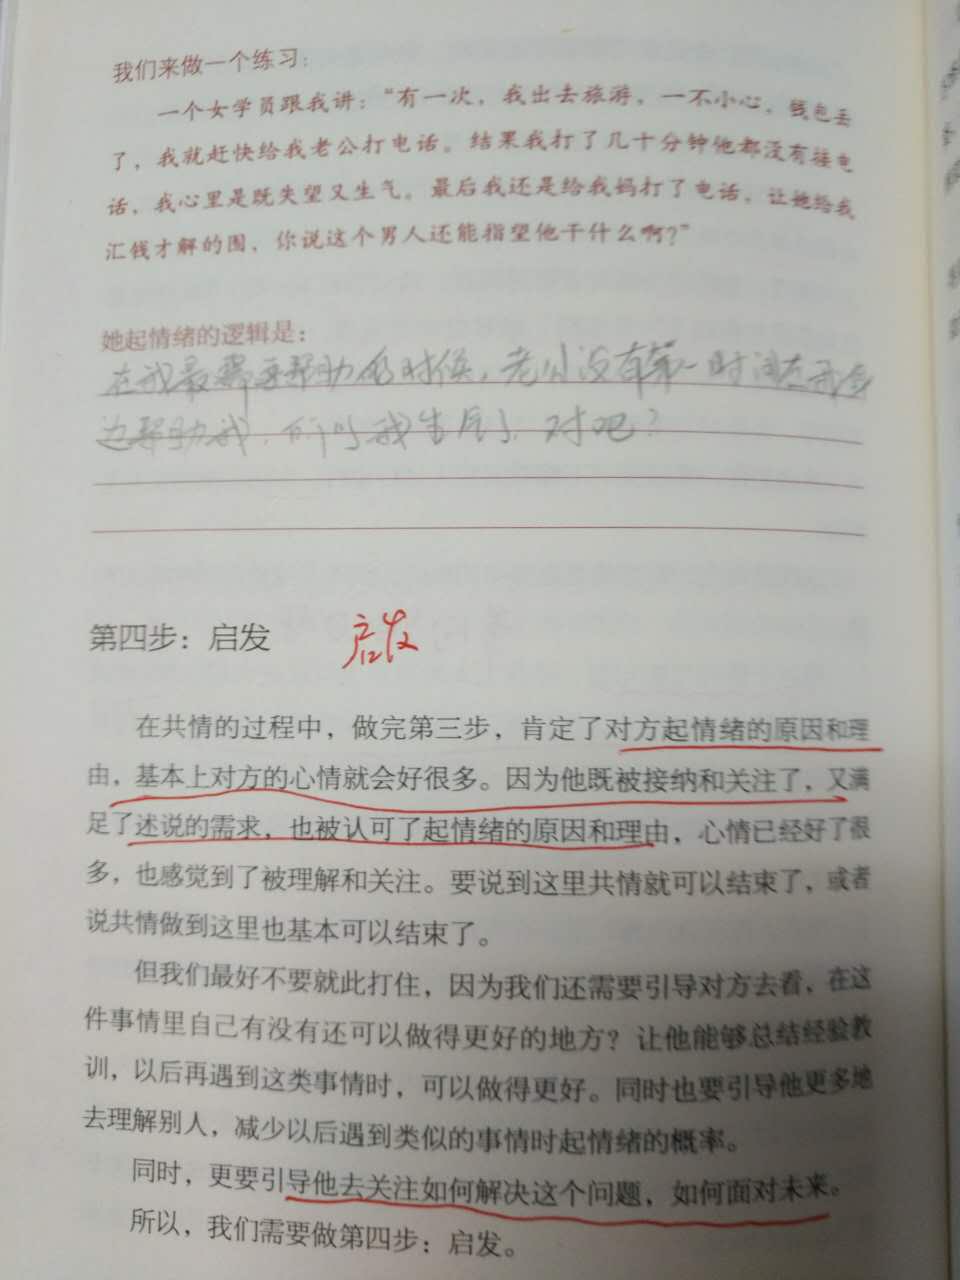 我们来做一个练习：
一个女学员跟我讲：“有一次，我出去旅游，一不小心，钱包丢
了，我就赶快给我老公打电话。结果我打了几十分钟他都没有接电
话，我心里是既失望又生气。最后我还是给我妈打了电话，让她给我
汇钱才解的围，你说这个男人还能指望他干什么啊？”
她起情绪的逻辑是：
在我最需要帮助的时候，老公没有第一时间在我身
边帮助我，所以我生气了，对吧？
第四步：启发
启发
在共情的过程中，做完第三步，肯定了对方起情绪的原因和理
由，基本上对方的心情就会好很多。因为他既被接纳和关注了，又满
足了述说的需求，也被认可了起情绪的原因和理由，心情已经好了很
多，也感觉到了被理解和关注。要说到这里共情就可以结束了，或者
说共情做到这里也基本可以结束了。
但我们最好不要就此打住，因为我们还需要引导对方去看，在这
件事情里自己有没有还可以做得更好的地方？让他能够总结经验教
训，以后再遇到这类事情时，可以做得更好。同时也要引导他更多地
去理解别人，减少以后遇到类似的事情时起情绪的概率。
同时，更要引导他去关注如何解决这个问题，如何面对未来。
所以，我们需要做第四步：启发。